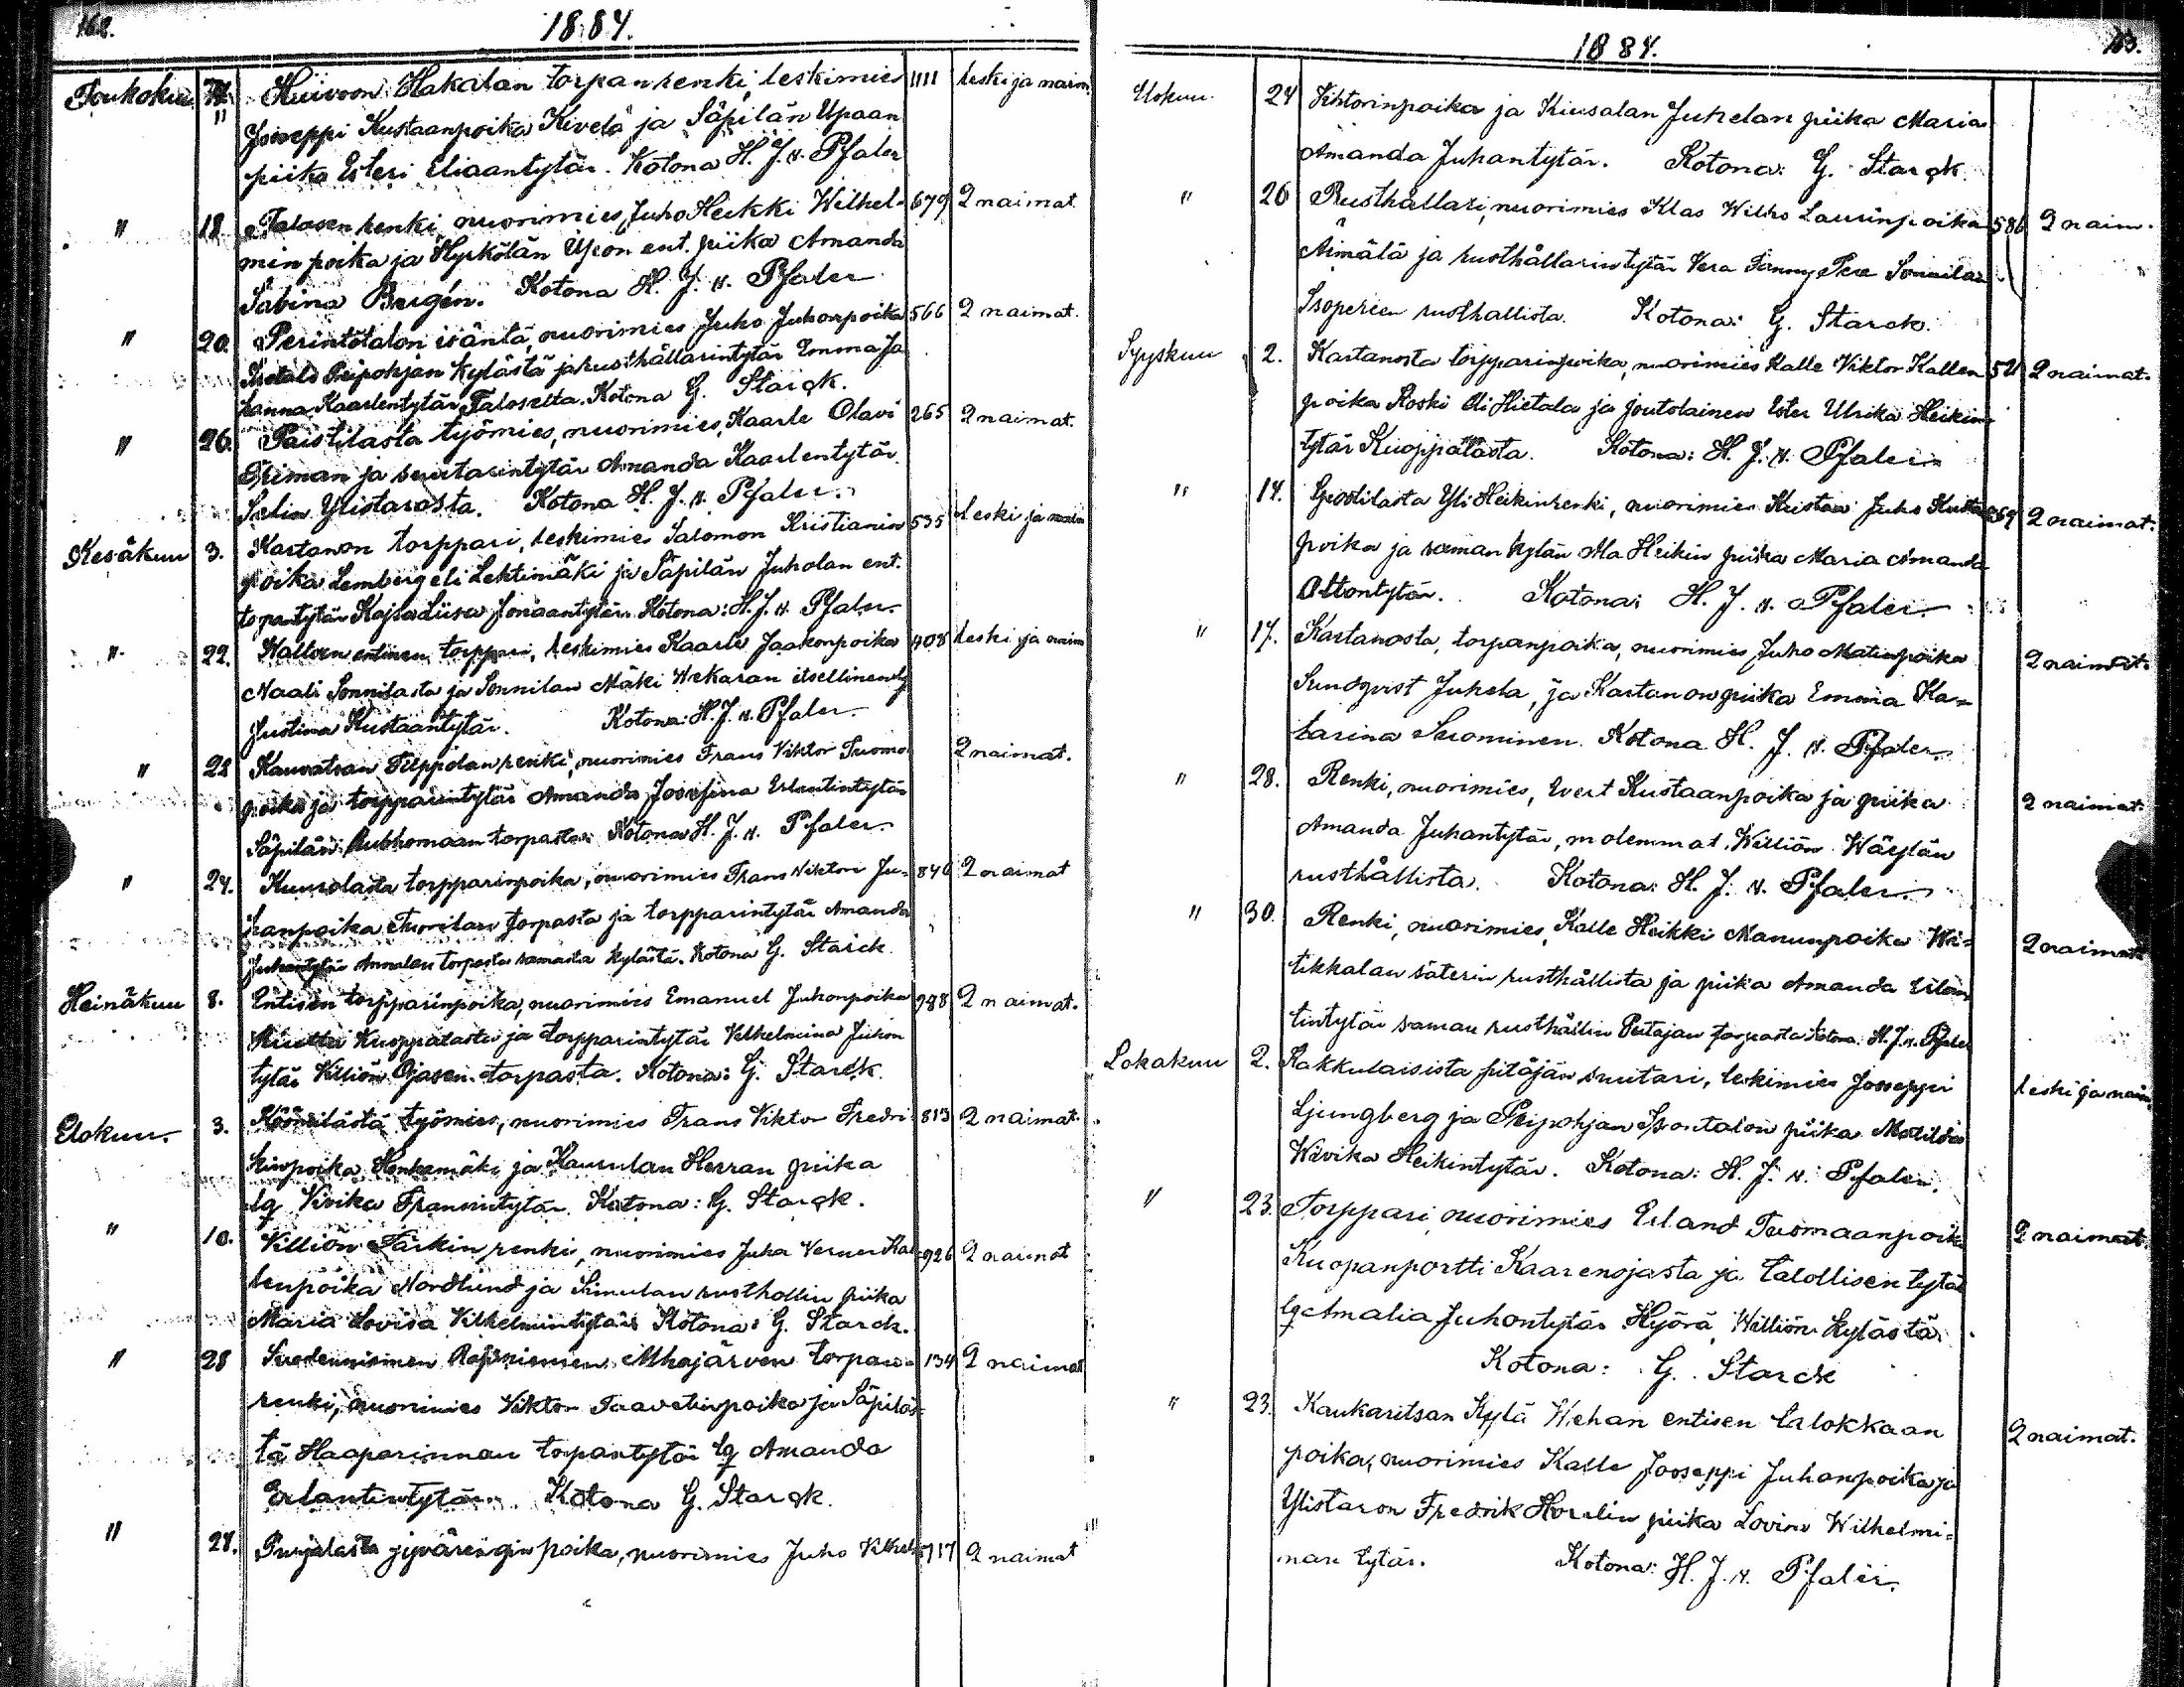 162.
1884.
Toukokuu " Huivoon Hakalan torpan renki, leskimies 1111 leski ja naim.
Jooseppi Kustaanpoika Kivelä ja Säpilän Upaan
piika Esteri Eliaantytär. Kotona H. J. v. Pfaler
" 18. Talasen renki, nuorimies, Juho Heikki Wilhel- 679 2 naimat.
min poika ja Hyrkölän Upon ent. piika Amanda
Sabina Bergén. Kotona H. J. v. Pfaler
" 20. Perintötalon isäntä, nuorimies Juho Juhonpoika 566 2 naimat.
Peipohjan kylästä ja rusthållarintytär Emma Jo
hanna Kaarlentytär Kotona G. Starck.
" 26. Paistilasta työmies, nuorimies, Kaarle Olavi 265 2 naimat.
ja suutarintytär Amanda Kaarlentytär
Selin Ylistarosta. Kotona H. J. v. Pfaler.
Kesäkuu 3. Kartanon torppari, leskimies Salomon Kristianin 535 leski ja naim
poika Lemberg eli Lehtimäki ja Säpilän Juholan ent.
torpantytär Kajsa Liisa Jonaantytär. Kotona: H. J. v. Pfaler.
" 22. entinen torppari, leskimies Kaarle Jaakonpoika 408 leski ja naim
Naali Sonnilasta ja Sonnilan Mäki Wekaran itsellinen lq
Justina Kustaantytär. Kotona: H. J. v. Pfaler.
" 22 Kauvatsan Filppolan renki, nuorimies Frans Viktor Tuomo 2 naimat.
poika ja torpparintytär Amanda Josefina Erlantintytär
Säpilän torpasta. Kotona H. J. v. Pfaler.
" 24. torpparinpoika, nuorimies Frans Viktor Ju- 846 2 naimat
hanpoika torpasta ja torpparintytär Amanda
Juhantytär Annalan torpasta samasta kylästä. Kotona G. Starck
Heinäkuu 8. Entisen torpparinpoika, nuorimies Emanuel Juhonpoika 988 2 naimat.
Kuoppalasta ja torpparintytär Vilhelmina Juhon
tytär Villiön Ojasen torpasta. Kotona: G. Starck.
Elokuu. 3. Köönilästä työmies, nuorimies Frans Viktor Fredri 813 2 naimat.
kinpoika ja Herran piika
lq Viika Fransintytär. Kotona: G. Starck.
" 10. Villiön Järkin renki, nuorimies Juha Verner Kal 926 2 naimat
lenpoika Nordlund ja rusthollin piika
Maria Lovisa Vilhelmintytär Kotona: G. Starck.
" 28 torpan 134 2 naimat
renki, nuorimies Viktor Taavetinpoika ja Säpiläs
tä Haaparinnan torpantytär lq Amanda
Erlantintytär. Kotona G. Starck.
" 24. poika, nuorimies Juho Vilhel 717 2 naimat
1884.
163.
Elokuu. 24 Viktorinpoika ja Kiusalan Juhelan piika Maria
Amanda Juhantytär. Kotona: G. Starck.
" 26 Rusthållari, nuorimies Klas Wilho Laurinpoika 586 2 naim.
Äimälä ja rusthållarintytär Vera Fanny Sonnilan
Isoperen rusthallista. Kotona: G. Starck.
Syyskuu 2. Kartanosta torpparinpoika, nuorimies Kalle Viktor Kallen 521 2 naimat.
poika Koski eli Hietala ja joutolainen Ester Ulrika Heikin
tytär Kuoppalasta. Kotona: H. J. v. Pfaler.
" 14. Yli Heikin renki, nuorimies Kustaa Juho Kustaa 2 naimat.
poika ja saman kylän Ala Heikin piika Maria Amanda
Ottontytär. Kotona: H. J. v. Pfaler.
" 17. Kartanosta, torpanpoika, nuorimies Juho Matinpoika 2 naimat.
Sundqvist Juhela, ja Kartanon piika Emma Ka-
tarina Suominen. Kotona H. J. v. Pfaler.
" 28. Renki, nuorimies, Evert Kustaanpoika ja piika 2 naimat.
Amanda Juhantytär, molemmat Williön Wäylän
rusthållista. Kotona: H. J. v. Pfaler.
" 30. Renki, nuorimies, Kalle Heikki Manunpoika Wi- 2 naimat.
tikkalan säterin rusthållista ja piika Amanda
tintytär saman rusthållin torpasta Kotona: H. J. v. Pfaler
Lokakuu 2. Kakkulaisista pitäjän suutari, leskimies Jooseppi leski ja naim.
Ljungberg ja Peipohjan Isontalon piika Matilda
Wivika Heikintytär. Kotona: H. J. v. Pfaler.
" 23. Torppari, nuorimies Erland Tuomaanpoika 2 naimat.
Kuopanportti Kaarenojasta ja talollisen tytär
lq Amalia Juhontytär Hyörä, Williön kylästä.
Kotona: G. Starck
" 23. Kaukaritsan Kylä Wehan entisen talokkaan 2 naimat.
poika, nuorimies Kalle Jooseppi Juhanpoika ja
Ylistaron Fredrik Horelin piika Lovisa Wilhelmi-
nan tytär. Kotona: H. J. v. Pfaler.